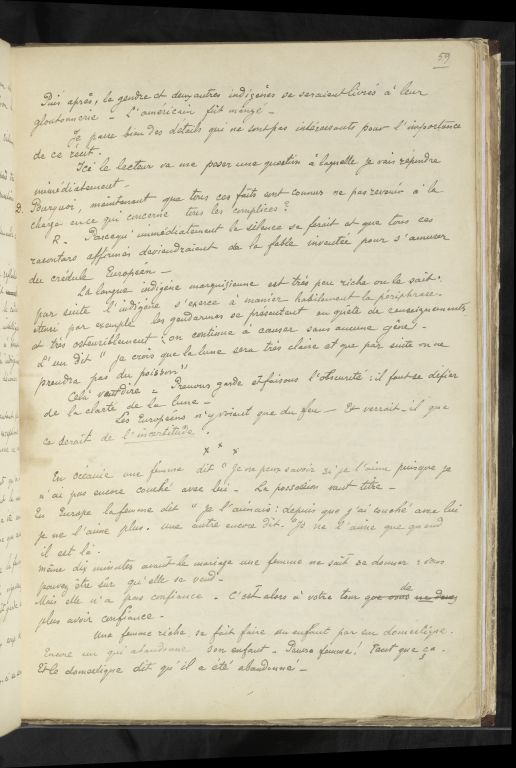 59
Puis après, le gendre et deux autres indigènes se seraient livrés à leur
gloutonnerie – L'américain fût mangé –
Je passe bien des détails qui ne sont pas intéressants pour l'importance
de ce récit.
Ici le lecteur va me poser une question à laquelle je vais répondre
immédiatement –
D. Pourquoi, maintenant que tous ces faits sont connus ne pas revenir à la
charge en ce qui concerne tous les complices?
R – Parcequ' immédiatement le silence se ferait et que tous ces
racontars affirmés deviendraient de la fable inventée pour s'amuser
du crédule Européen –
La langue indigène marquisienne est très peu riche on le sait:
par suite l'indigène s'exerce à manier habituement la périphrase.
par exemple les gendarmes se présentent en quête de renseignements
et très ostensiblement: on continue à causer sans aucune gêne –
L'un dit " Je crois que la lune sera très claire et que par suite on ne
prendra pas du poisson"
Cela veut dire – Prenons garde et faisons l'obscurité: il faut se défier
de la clarté de la lune –
Les Européens n'y voient que du feu – Et verrait-il que
ce serait de l'incertitude.
x x x
En océanie une femme dit " Je ne peux savoir si je l'aime puisque je
n'ai pas encore couché avec lui – La possession vaut titre –
En Europe la femme dit " Je l'aimais: depuis que j'ai couché avec lui
je ne l'aime plus. Une autre encore dit. "Je ne l'aime que quand
il est là.
même dix minutes avant le mariage une femme ne sait se donner: vous
pouvez être sûr qu'elle se vend –
Mais elle n'a pas confiance – C'est alors à votre tour que vous de ne
plus avoir confiance –
Une femme riche, se fait faire un enfant par un domestique.
Encore un qui abandonne son enfant – Pauvre femme! Tant que ça.
Et le domestique dit qu'il a été abandonné –